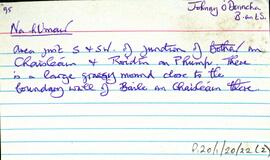 95
Johnny O'Donncha
B. an E.S.
Na hUmair
Area just S & SW. of junction of Bóthar an
Chaisleáin & Róidín an Phump. There
is a large grassy mound close to the
boundary wall of Baile an Chaisleáin there.
D.20/1/20/22 (2)